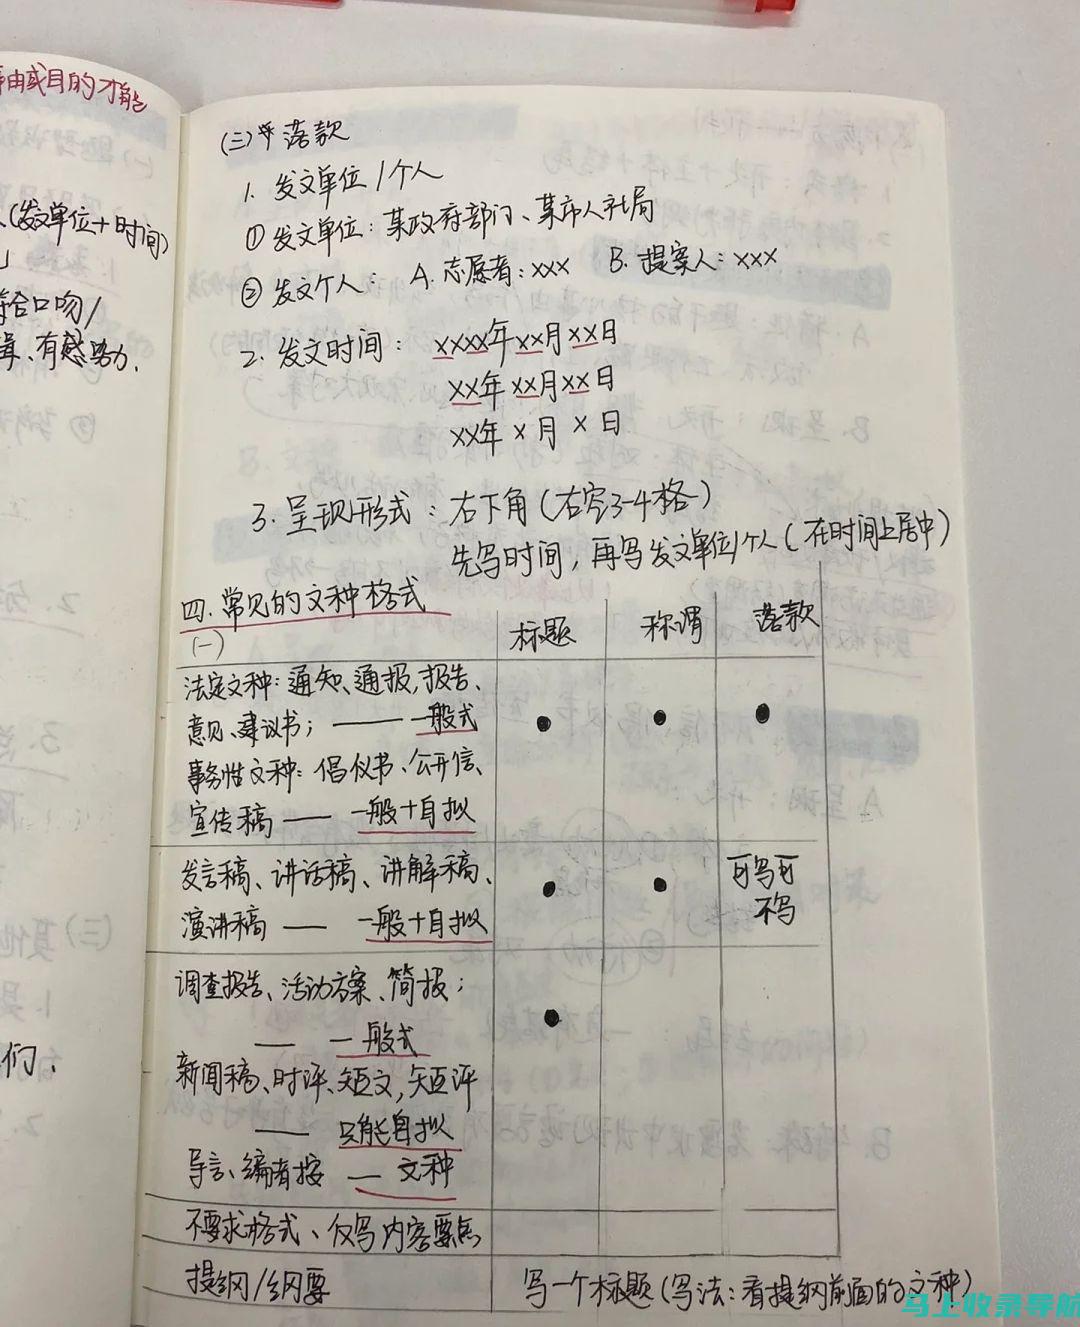 事由或目的才能
(发文单位+时间)
符合口吻/
有感染力.
们.
(三) 落款
1. 发文单位/个人
① 发文单位: 某政府部门、某市人社局
② 发文个人: A. 志愿者: xxx B. 提案人: xxx
2. 发文时间: xxxx年xx月xx日
xx年xx月xx日
xx年x月x日
3. 呈现形式: 右下角(右空3-4格)
先写时间, 再写发文单位/个人(在时间上居中)
四. 常见的文种格式
(一) 标题 称谓 落款
法定文种: 通知、通报, 报告、
意见、建议书; —— 一般式 ● ● ●
事务性文种: 倡议书、公开信、
宣传稿 —— 一般+自拟
发言稿、讲话稿、讲解稿、 ● ● 可写可
演讲稿 —— 一般+自拟 不写
调查报告、活动方案、简报;
—— 一般式 ●
新闻稿、时评、短文, 短评
—— 只能自拟
导言、编者按 — 文种
不要求格式、仅写内容要点
提纲/纲要 写一个标题(写法: 看提纲前面的文种)
马上收录导航